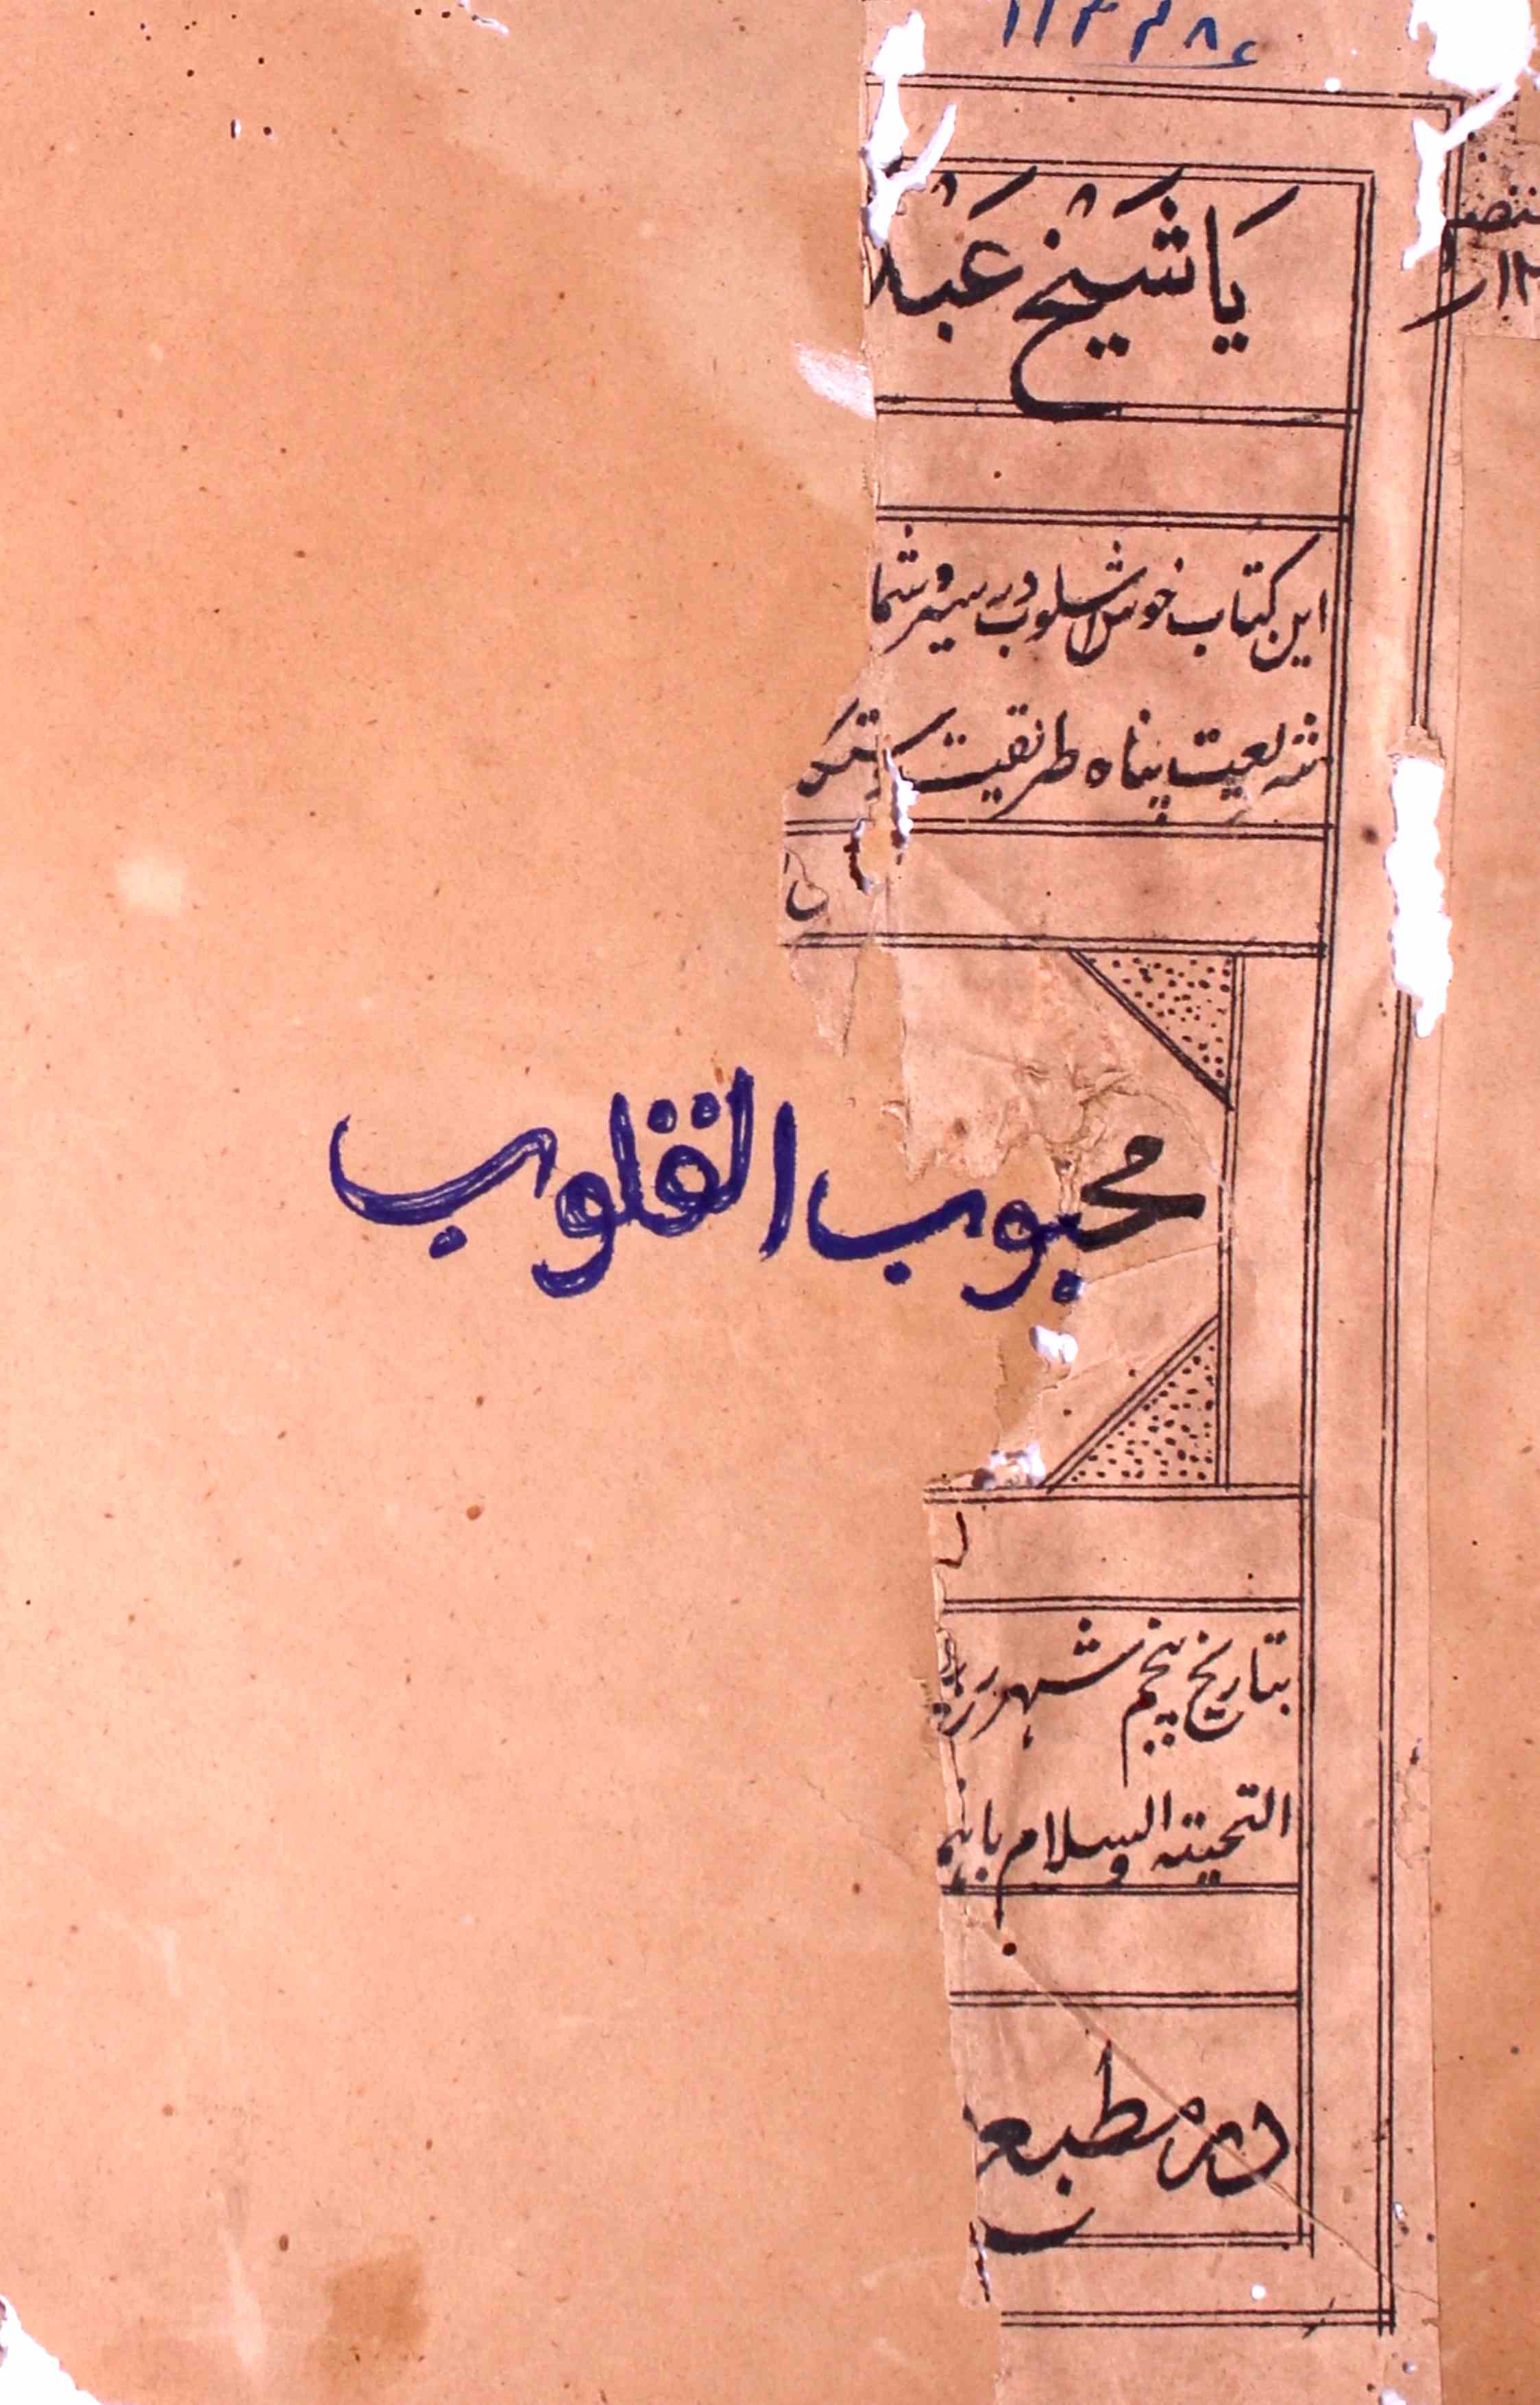 ۱۱۳۳۸ء
یا شیخ عبد
این کتاب خوش اسلوب در سیر و شما
شریعت پناه طریقت
محبوب القلوب
بتاریخ پنجم شهر
التحیته والسلام
در مطبع